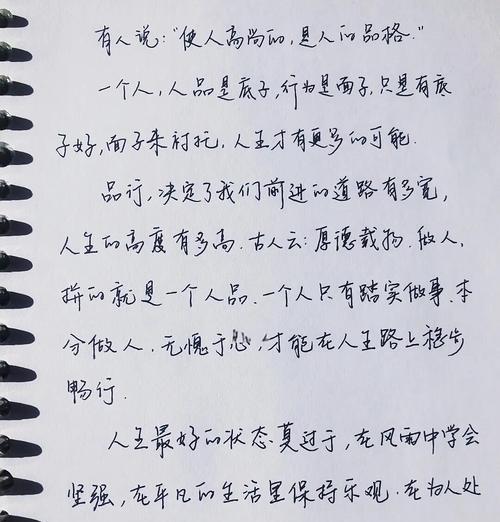 有人说:“使人高尚的,是人的品格.”
一个人,人品是底子,行为是面子,只是有底
子好,面子来衬托,人生才有更多的可能.
品行,决定了我们前进的道路有多宽,
人生的高度有多高.古人云:厚德载物.做人,
拼的就是一个人品.一个人只有踏实做事.本
分做人.无愧于心,才能在人生路上稳步
畅行.
人生最好的状态莫过于,在风雨中学会
坚强,在平凡的生活里保持乐观.在为人处